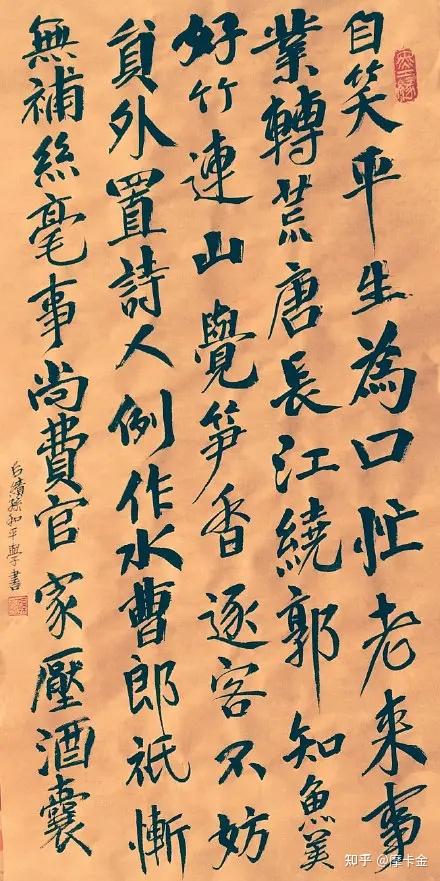 自笑平生為口忙老来事
業轉荒唐長江繞郭知魚美
好竹連山覺笋香逐客不妨
貟外置詩人例作水曹郎祇慚
無補絲毫事尚費官家壓酒囊
孫和平學書
知乎 @摩卡金